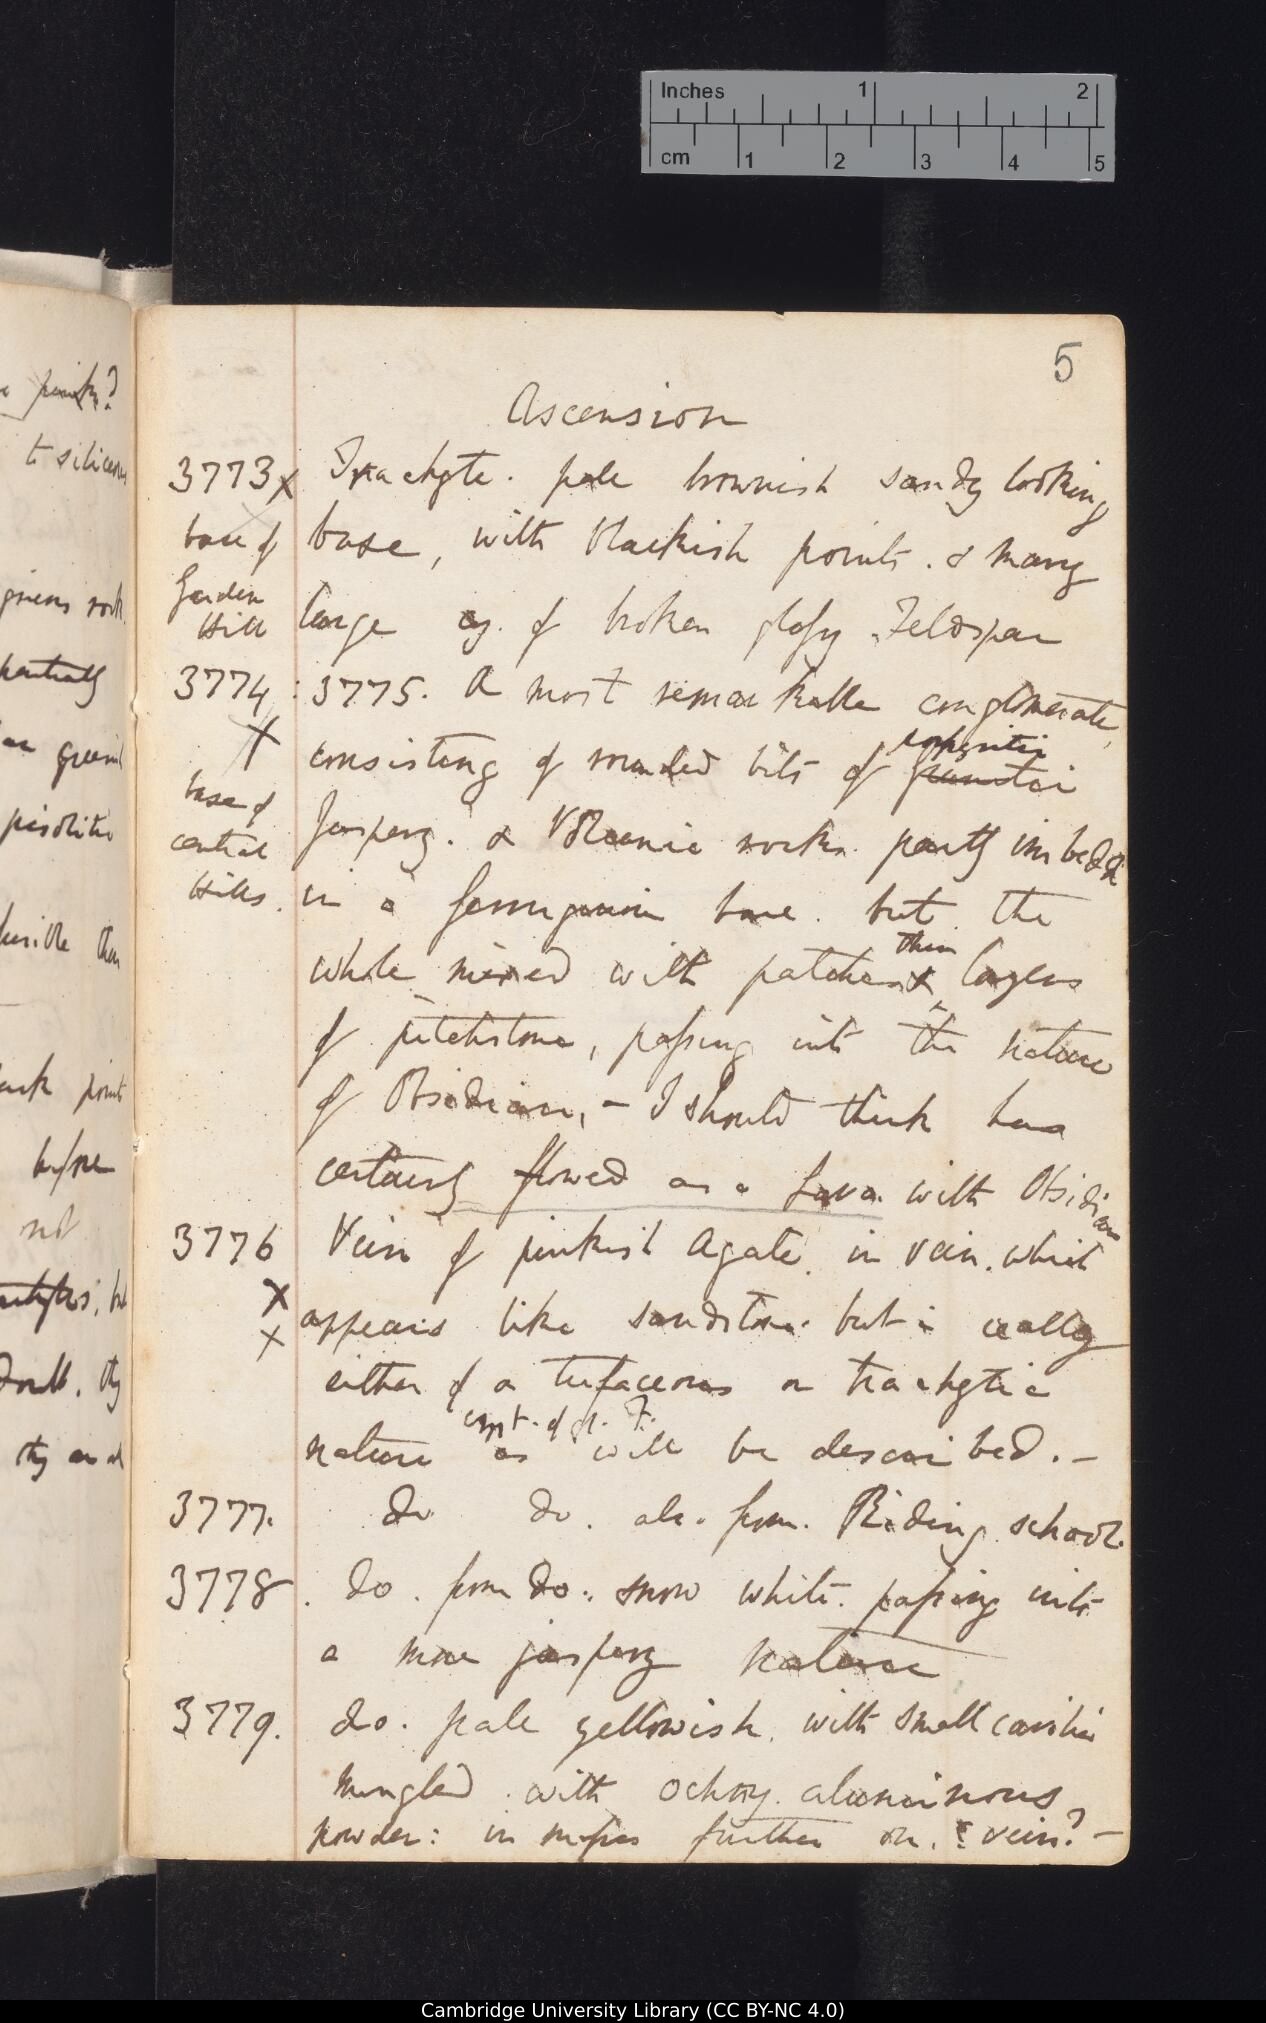 Inches 1 2
cm 1 2 3 4 5
5
Ascension
3773 x Trachyte. pale brownish sandy looking
base of base, with blackish points. & many
Garden
Hill large cry. of broken glassy Feldspar
3774 : 3775. A most remarkable conglomerate,
x
consisting of rounded bits of
base of
central Jaspery. & Volcanic rocks. partly imbedded
Hills. in a ferruginous base. but the
whole mixed with patches & thin layers
of pitchstone, passing into the nature
of Obsidian, — I should think has
certainly flowed as a Lava. with Obsidian
3776 Vein of pinkish Agate. in vein. which
x appears like sandstone. but is really
x
either of a tufaceous or trachytic
nature as will be described. —
3777. do do. also. from. Riding school.
3778. do. from do: snow white. passing into
a more jaspery nature
3779. do. pale yellowish. with small cavities
mingled with ochry. aluminous
powder: in masses further on. vein? —
pink?
to siliceous
before
not
Cambridge University Library (CC BY-NC 4.0)